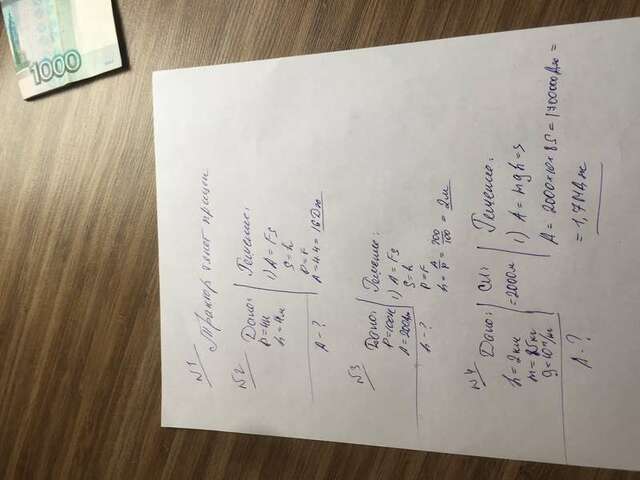 1000
№1
Трактор тянет прицеп
№2
Дано:
P=4н
h=4м
A-?
Решение:
1) A=Fs
S=h
P=F
A=4.4=16Дж
№3
Дано:
P=100н
A=200Дж
h-?
Решение:
1) A=Fs
S=h
P=F
h=A/P=200/100=2м
№4
Дано:
h=2км
m=85кг
g=10н/кг
A-?
СИ:
=2000м
Решение:
1) A=mgh=s
A=2000×10×85=1700000Дж=
=1,7МДж